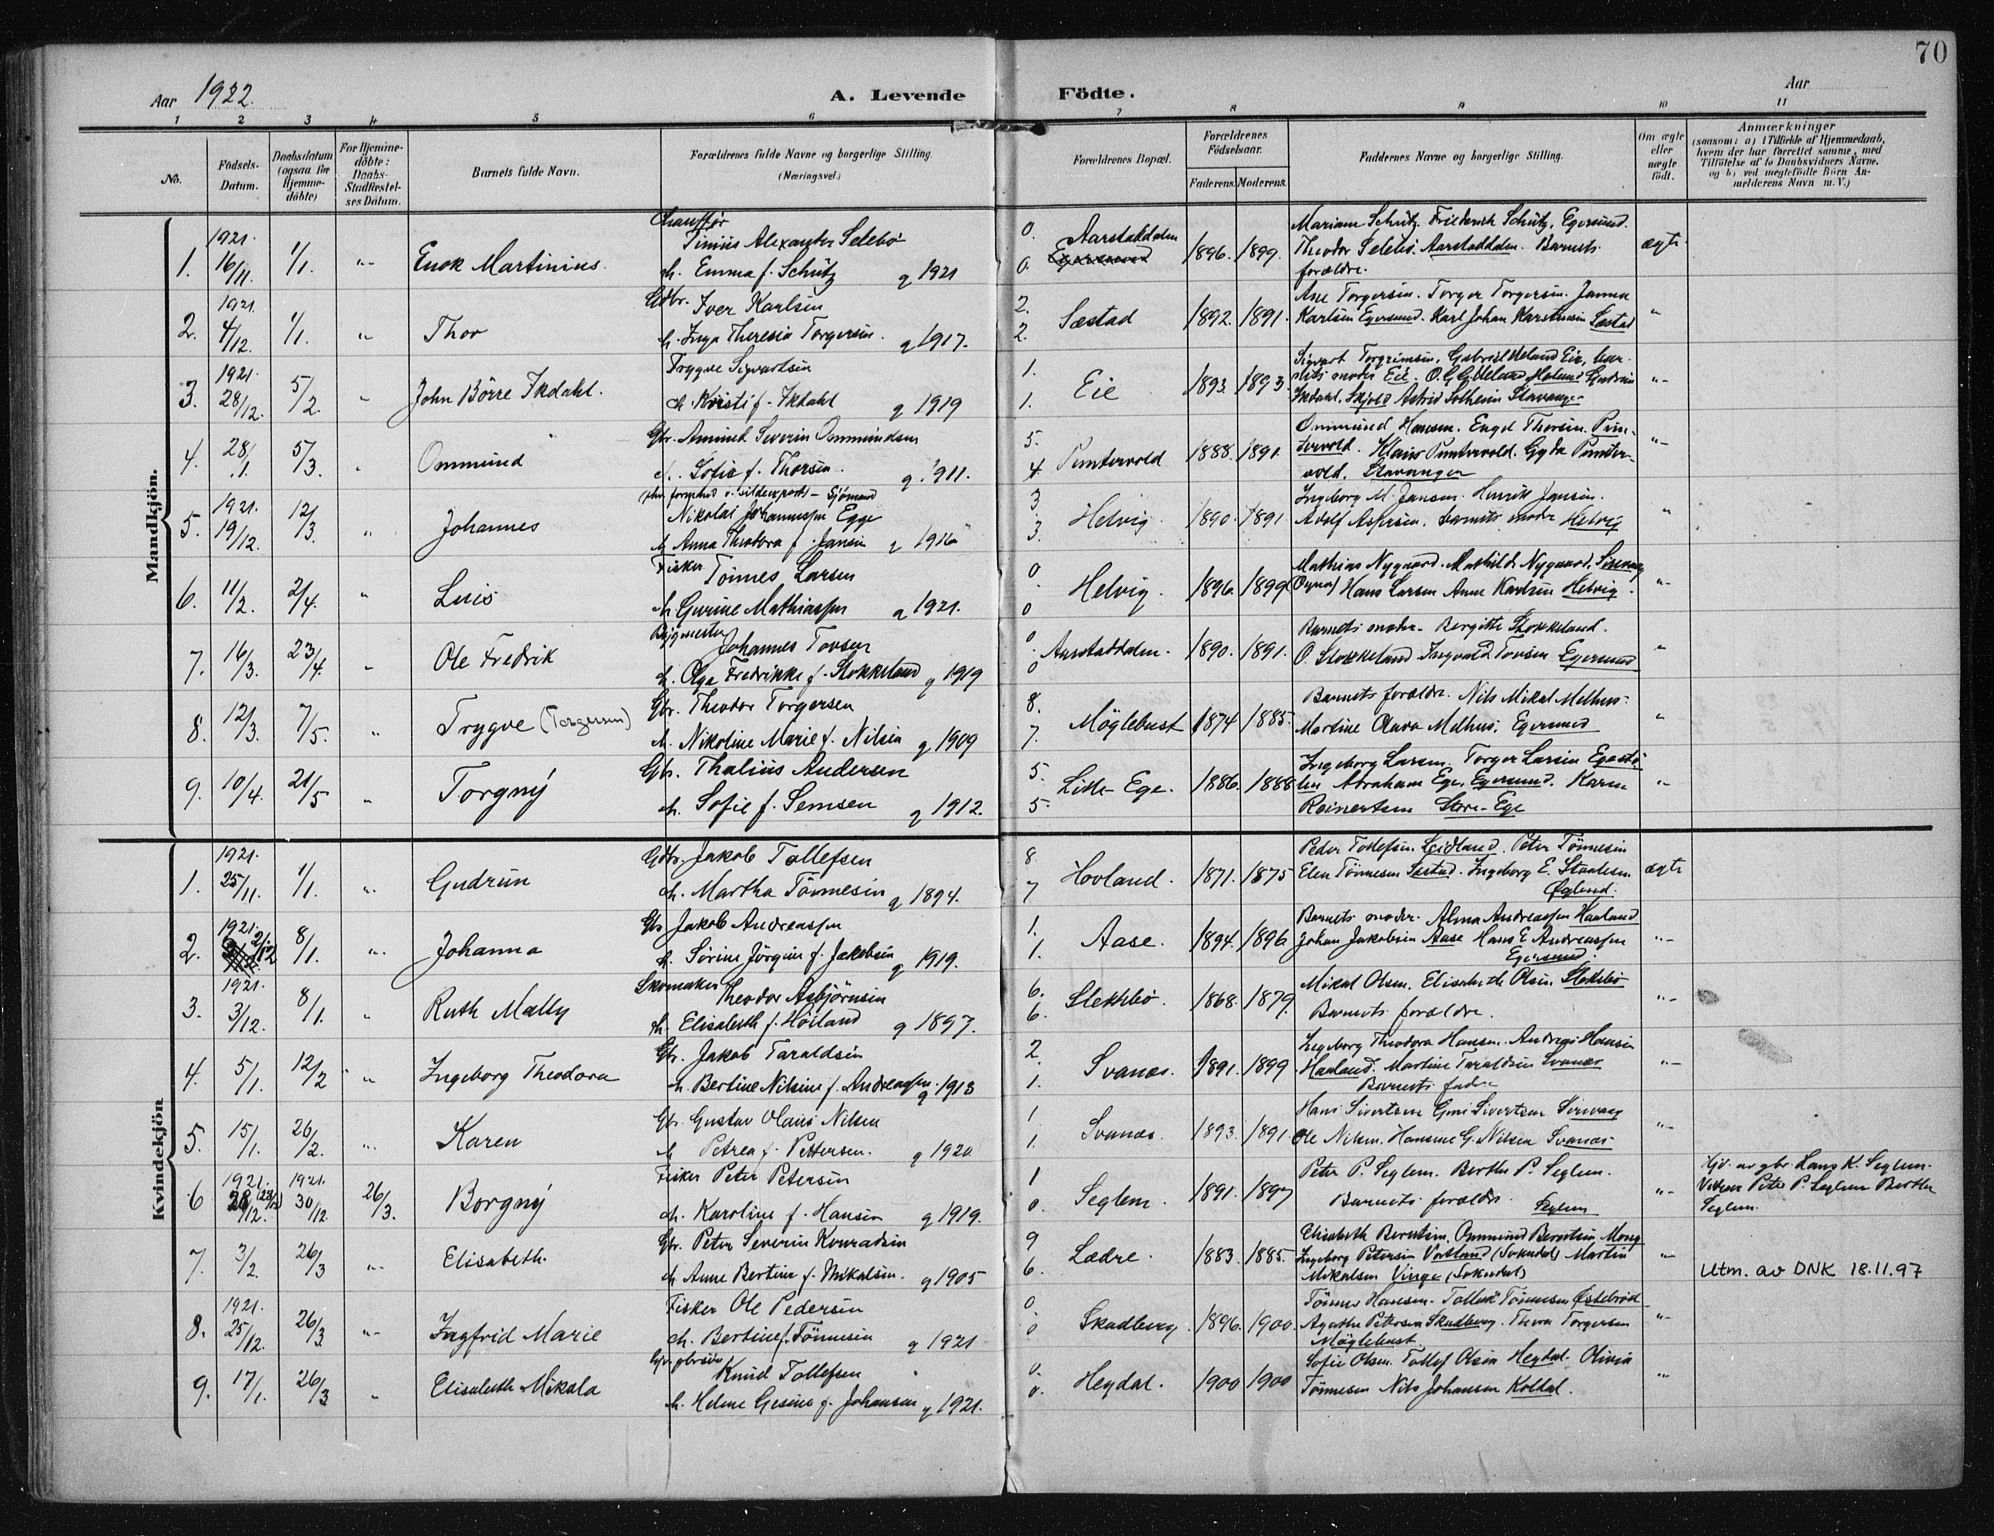 70
Aar 1922.
A. Levende Födte.
Aar
1 2 3 4 5 6 7 8 9 10 11
No.
Födsels-Datum.
Daabsdatum (ogsaa for Hjemmedöbte)
For Hjemmedöbte: Daabs-Stadfæstelses Datum.
Barnets fulde Navn.
Forældrenes fulde Navne og borgerlige Stilling.
(Næringsvei.)
Forældrenes Bopæl.
Forældrenes Födselsaar.
Faderens. Moderens.
Faddernes Navne og borgerlige Stilling.
Om ægte eller uægte födt.
Anmærkninger
(saasom: a) i Tilfælde af Hjemmedaab, hvem der har forrettet samme, med Tilföielse af to Daabsvidners Navne, og b) ved uegtefödte Börn Anmelderens Navn m. V.)
Mandkjön.
1. 1921. 16/11. 1/1. Enok Martinius.
Alexander Selebø
Emma f. Schütz g 1921
0. 0. Aarstaddalen 1896. 1899.
Mariane Schütz. Friederich Schütz, Egersund.
Theodor Selebø Aarstaddalen. Barnets
forældre.
ægte
2. 1921. 4/12. 1/1. Thor
Gbr. Iver Karlsen
h. Inga Theresia Torgersen. g 1917.
2. 2. Sæstad 1892. 1891.
Torgersen. Torger Torgersen. Janna
Karlsen Egersund. Karl Johan Karstensen Sæstad
3. 1921. 28/12. 5/2. John Börre Ikdahl.
Trygve Sigvartsen
f. Ikdahl g 1919
1. 1. Eie 1893. 1893.
Sigvart Torgrimsen, Eie,
Ikdahl. Astrid Solheim Stavanger
4. 28/1. 5/3. Ommund
Gbr. Severin Ommundsen
Sofie f. Thorsen. g. 1911.
5. 4. Puntervold 1888. 1891.
Ommund Hansen. Engel Thorsen. Pun-
tervold. Klaus Puntervold. Gyda Punter-
vold. Stavanger
5. 1921. 19/12. 12/3. Johannes
Nikolai Johannessen Egge
Anna Theodora f. Jansen g 1916
3. 3. Helvig. 1890. 1891.
Ingeborg M. Jansen. Henrik Jansen.
Adolf Aspersen. barnets moder Helvig
6. 11/2. 2/4. Luis
Fisker Tönnes Larsen
h. Gurine Mathiassen g 1921.
0. 0 Helvig. 1896. 1899
Mathias Nygaard. Mathilde Nygaard, Sirevaag
(Ogna) Hans Larsen Anne Karlsen Helvig.
7. 16/3. 23/4. Ole Fredrik
Bygmester Johannes Tovsen
h. Olga Fredrikke f. Stokkeland g 1919
0 0 Aarstaddalen. 1890. 1891.
Barnets moder. Bergitte Stokkeland.
O Stokkeland Ingvald Tovsen Egersund
8. 12/3. 7/5. Trygve (Torgersen)
Gbr. Theodor Torgersen
h. Nikoline Marie f. Nilsen g 1909
8. 7. Möglebust 1874 1885.
Barnets forældre. Nils Mikal Melhus.
Martine Olava Melhus. Egersund
9. 10/4. 21/5. Torgny
Gbr. Thalius Andersen
h. Sofie f. Semsen g 1912.
5. 5. Lille Ege. 1886. 1888
Ingeborg Larsen. Torger Larsen
Abraham Ege, Egersund. Karen
Reinertsen Store-Ege
Kvindekjön
1. 1921. 25/11. 1/1. Gudrun
Gbr. Jakob Tollefsen
h. Martha Tönnesen g 1894.
8. 7 Hovland. 1871. 1875
Peder Tollefsen. Leidland. Peter Tönnesen
Elen Tönnesen Sæstad. Ingeborg E. Staalesen
Øglend.
ægte
2. 1921. 2/12 8/1. Johanna
Gbr Jakob Andreassen
h. Serine Jörgine f. Jakobsen g 1919.
1. 1. Aase. 1894. 1896
Barnets moder. Alma Andreassen Haaland
Johan Jakobsen Aase Hans E. Andreassen
Egersund.
3. 1921. 3/12. 8/1. Ruth Mally
Skomaker Theodor Asbjörnsen
h. Elisabeth f. Höiland g 1897.
6. 6. Slettebø. 1868. 1879.
Mikal Olsen. Elisabeth Olsen Slettebø
Barnets forældre.
4. 5/1. 12/2 Ingeborg Theodora
Gbr. Jakob Taraldsen
h. Bertine Nilsine f. Andreassen. g 1913
2. 1. Svanæs. 1891. 1899
Ingeborg Theodora Hansen. Andreas Hansen
Haaland. Martine Taraldsen Svanæs
Barnets fader
5. 15/1. 26/2. Karen
Gbr. Gustav Olaus Nilsen
h Petrea f. Pettersen. g 1920
1. 1. Svanæs. 1893. 1891
Hans Sivertsen Sivertsen Sirevaag
Ole Nilsen. Hansine G. Nilsen Svanæs
6 1921. 28/12. 1921. 30/12 26/3. Borgny
Fisker Peter Petersen
h. Karoline f. Hansen g 1919.
1 0 Seglem. 1891. 1897
Peter P. Seglem. Berthe P. Seglem.
Barnets forældre. Seglem
Hjd. av gbr. Hans K. Seglem.
Vidner Peter P. Seglem Berthe
Seglem.
7. 3/2. 26/3 Elisabeth.
Gbr. Peter Severin Konradsen
h. Anne Bertine f. Mikalsen. g 1905
9 6. Lædre. 1883. 1885.
Elisabeth Berentsen. Ommund Berentsen Mong
Ingeborg Petersen Vatland (Sokndal) Martin
Mikalsen Vinge (Sokndal)
Utm. av DNK 18.11.97
8. 1921. 25/12. 26/3 Ingfrid Marie
Fisker Ole Pedersen
h. Bertine f. Tönnesen g 1921
0. 0 Skadberg. 1896. 1900.
Tönnes Hansen. Tönnesen Østebrød
Agathe Petersen Skadberg. Thora Torgersen
Möglebust
9. 17/1. 26/3 Elisabeth Mikala
Knud Tollefsen
h. Helene Gesine f. Johansen g 1921.
0. 0. Hegdal. 1900 1900
Sofie Olsen. Tollef Olsen Hegdal. Olivia
Tönnesen Nils Johansen Koldal.